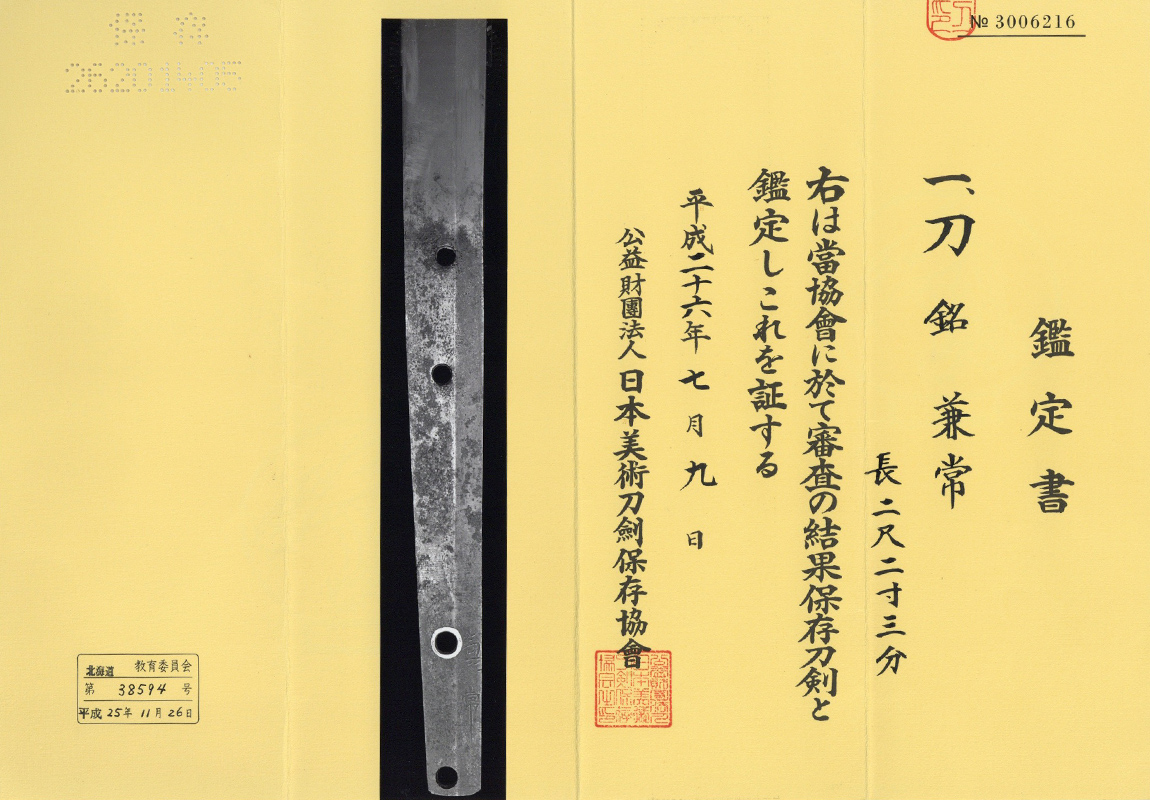 № 3006216
鑑定書
一、刀 銘 兼常
長二尺二寸三分
右は當協會に於て審査の結果保存刀剣と
鑑定しこれを証する
平成二十六年七月九日
公益財團法人日本美術刀劍保存協會
保存
26201406
北海道 教育委員会
第 38594 号
平成 25年 11月 26日